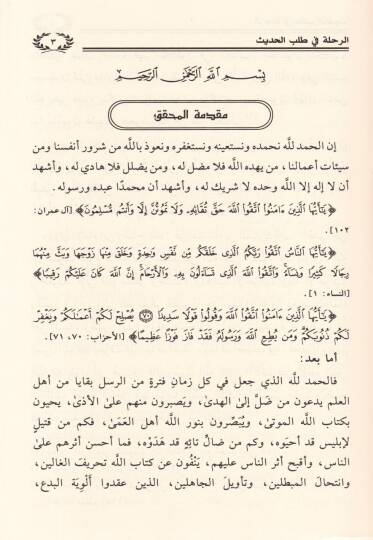 الرحلة في طلب الحديث
٣
بِسْمِ اللَّهِ الرَّحْمَٰنِ الرَّحِيمِ
مقدمة المحقق
إن الحمد لله نحمده ونستعينه ونستغفره ونعوذ بالله من شرور أنفسنا ومن
سيئات أعمالنا، من يهده الله فلا مضل له، ومن يضلل فلا هادي له، وأشهد
أن لا إله إلا الله وحده لا شريك له، وأشهد أن محمدًا عبده ورسوله.
﴿يَٰٓأَيُّهَا ٱلَّذِينَ ءَامَنُوا ٱتَّقُوا ٱللَّهَ حَقَّ تُقَاتِهِۦ وَلَا تَمُوتُنَّ إِلَّا وَأَنتُم مُّسْلِمُونَ﴾ [آل عمران:
١٠٢].
﴿يَٰٓأَيُّهَا ٱلنَّاسُ ٱتَّقُوا رَبَّكُمُ ٱلَّذِى خَلَقَكُم مِّن نَّفْسٍ وَٰحِدَةٍ وَخَلَقَ مِنْهَا زَوْجَهَا وَبَثَّ مِنْهُمَا
رِجَالًا كَثِيرًا وَنِسَآءً وَٱتَّقُوا ٱللَّهَ ٱلَّذِى تَسَآءَلُونَ بِهِۦ وَٱلْأَرْحَامَ إِنَّ ٱللَّهَ كَانَ عَلَيْكُمْ رَقِيبًا﴾
[النساء: ١].
﴿يَٰٓأَيُّهَا ٱلَّذِينَ ءَامَنُوا ٱتَّقُوا ٱللَّهَ وَقُولُوا قَوْلًا سَدِيدًا ۝٧٠ يُصْلِحْ لَكُمْ أَعْمَٰلَكُمْ وَيَغْفِرْ
لَكُمْ ذُنُوبَكُمْ وَمَن يُطِعِ ٱللَّهَ وَرَسُولَهُۥ فَقَدْ فَازَ فَوْزًا عَظِيمًا﴾ [الأحزاب: ٧٠، ٧١].
أما بعد:
فالحمد لله الذي جعل في كل زمانِ فترةٍ من الرسل بقايا من أهل
العلم يدعون من ضَلَّ إلى الهدىٰ، ويَصبرون منهم على الأذىٰ، يحيون
بكتاب الله الموتىٰ، ويُبَصِّرون بنور الله أهل العَمَىٰ، فكم من قتيلٍ
لإبليس قد أحيَوه، وكم من ضالٍّ تائهٍ قد هَدَوْه، فما أحسن أثرهم علىٰ
الناس، وأقبح أثر الناس عليهم، يَنْفُون عن كتاب الله تحريفَ الغالين،
وانتحالَ المبطلين، وتأويلَ الجاهلين، الذين عقدوا ألْوِيَة البدع،